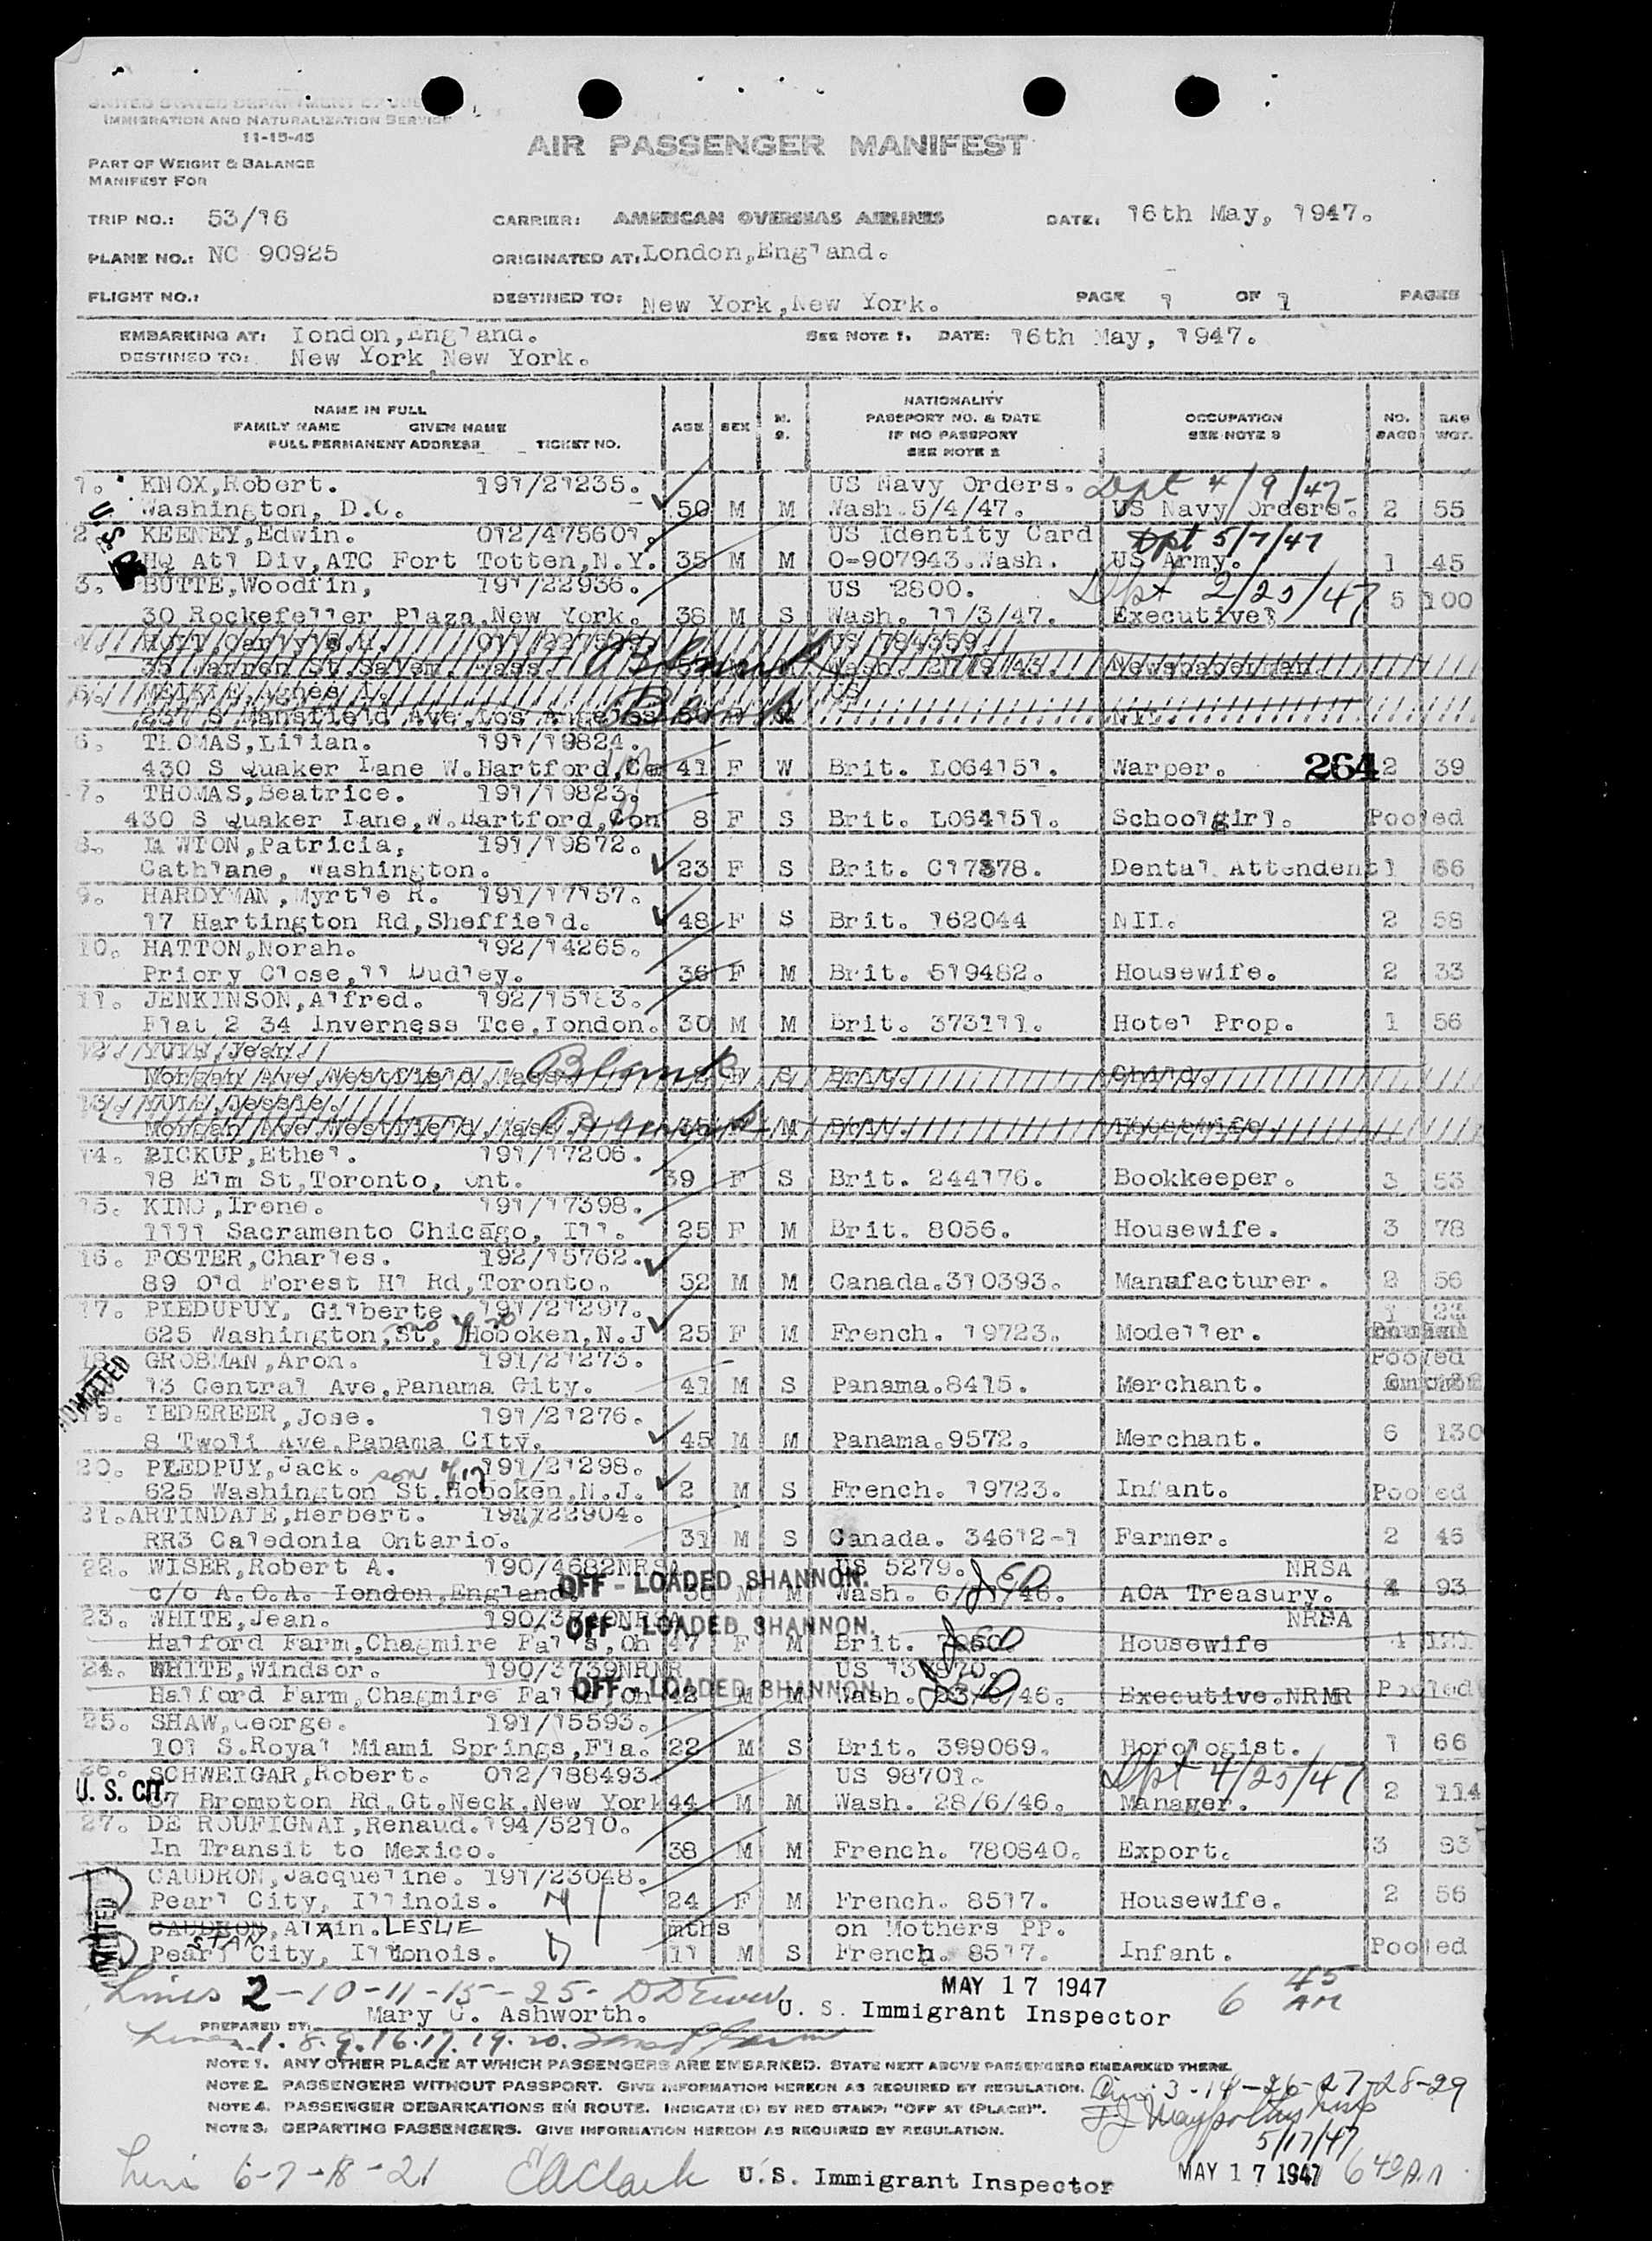 UNITED STATES DEPARTMENT OF JUS
IMMIGRATION AND NATURALIZATION SERVICE
11-15-45
AIR PASSENGER MANIFEST
PART OF WEIGHT & BALANCE
MANIFEST FOR
TRIP NO.: 53/16 CARRIER: AMERICAN OVERSEAS AIRLINES DATE: 16th May, 1947.
PLANE NO.: NC 90925 ORIGINATED AT: London,England.
FLIGHT NO.: DESTINED TO: New York,New York. PAGE 1 OF 1 PAGES
EMBARKING AT: London,England. SEE NOTE 1. DATE: 16th May, 1947.
DESTINED TO: New York New York.
NAME IN FULL
FAMILY NAME GIVEN NAME
FULL PERMANENT ADDRESS TICKET NO.
AGE SEX M. S.
NATIONALITY
PASSPORT NO. & DATE
IF NO PASSPORT
SEE NOTE 2
OCCUPATION
SEE NOTE 3
NO. BAGS BAG WGT.
1. KNOX,Robert. 191/21235. US Navy Orders. Dpt 4/9/47
Washington, D.C. 50 M M Wash.5/4/47. US Navy Orders. 2 55
U.S.
2 KEENEY,Edwin. 012/475601. US Identity Card Dpt 5/7/47
HQ Atl Div,ATC Fort Totten,N.Y. 35 M M O-907943.Wash. US Army. 1 45
3. BUTTE,Woodfin, 191/22936. US 2800. Dpt 2/25/47
30 Rockefeller Plaza.New York. 38 M S Wash. 11/3/47. Executive 5 100
4. Blank US 784359. Newspaperman
5. Agnes Blank US
237 S Mansfield Ave,Los Angeles NIL.
6. THOMAS,Lilian. 191/19824.
430 S Quaker Lane W.Hartford,Co 41 F W Brit. L064151. Warper. 264 2 39
7. THOMAS,Beatrice. 191/19823.
430 S Quaker Lane,W.Hartford,Con 8 F S Brit. L064151. Schoolgirl. Pooled
8. LAWTON,Patricia, 191/19872.
Cathlane, Washington. 23 F S Brit. C17378. Dental Attendent 1 66
9. HARDYMAN,Myrtle R. 191/17157.
17 Hartington Rd,Sheffield. 48 F S Brit. 162044 NIL. 2 58
10. HATTON,Norah. 192/14265.
Priory Close,11 Dudley. 36 F M Brit. 519482. Housewife. 2 33
11. JENKINSON,Alfred. 192/15183.
Flat 2 34 Inverness Tce,London. 30 M M Brit. 373111. Hotel Prop. 1 56
12. YUIL,Jean. Blank
Morgan Ave,Westfield,Mass. S Brit. Child.
13. YUIL,Jessie.
Morgan Ave Westfield,Mass. Blank M Brit. Housewife.
14. PICKUP,Ethel. 191/17206.
18 Elm St,Toronto, Ont. 39 F S Brit. 244176. Bookkeeper. 3 53
15. KING,Irene. 191/17398.
1111 Sacramento Chicago, Ill. 25 F M Brit. 8056. Housewife. 3 78
16. FOSTER,Charles. 192/15762.
89 Old Forest Hl Rd,Toronto. 52 M M Canada.310393. Manafacturer. 2 56
17. PIEDUPUY, Gilberte. 191/21297.
625 Washington,St, Hoboken,N.J 25 F M French. 19723. Modeller.
18. GROBMAN,Aron. 191/21273. Pooled
13 Central Ave,Panama City. 41 M S Panama.8415. Merchant.
ADMITTED
19. LEDEREER,Jose. 191/21276.
8 Twoli Ave,Panama City. 45 M M Panama.9572. Merchant. 6 130
20. PIEDPUY,Jack. son of 17 191/21298.
625 Washington St.Hoboken,N.J. 2 M S French. 19723. Infant. Pooled
21.ARTINDALE,Herbert. 191/22904.
RR3 Caledonia Ontario. 31 M S Canada. 34612-1 Farmer. 2 45
22. WISER,Robert A. 190/4682NRSA US 5279. NRSA
c/o A.O.A. London,England OFF - LOADED SHANNON. M M Wash. 6/ /46. AOA Treasury. 93
23. WHITE,Jean. NRSA
OFF - LOADED SHANNON.
Halford Farm,Chagmire Falls,Oh 47 F M Brit. Housewife
24. WHITE,Windsor. 190/3739NRMR US
OFF - LOADED SHANNON
Halford Farm,Chagmire Falls Oh 42 M M Wash. /46. Executive.NRMR Pooled
25. SHAW,George. 191/15593.
101 S.Royal Miami Springs,Fla. 22 M S Brit. 399069. Horologist. 1 66
26. SCHWEIGAR,Robert. 012/188493 US 98701. Dpt 4/25/47
U. S. CIT. 37 Brompton Rd,Gt.Neck,New York 44 M M Wash. 28/6/46. Manager. 2 114
27. DE ROUFIGNAI,Renaud.194/5210.
In Transit to Mexico. 38 M M French. 780840. Export. 3 93
CAUDRON,Jacqueline. 191/23048.
Pearl City, Illinois. 24 F M French. 8517. Housewife. 2 56
CAUDRON, Alain. LESLIE mths on Mothers PP.
Pearl City, Illonois. 11 M S French. 8517. Infant. Pooled
ADMITTED
Lines 2-10-11-15-25- MAY 17 1947 6 45 AM
Mary G. Ashworth. U. S. Immigrant Inspector
PREPARED BY:
Lines 1. 8. 9. 16. 17. 19. 20.
NOTE 1. ANY OTHER PLACE AT WHICH PASSENGERS ARE EMBARKED. STATE NEXT ABOVE PASSENGERS EMBARKED THERE.
NOTE 2. PASSENGERS WITHOUT PASSPORT. GIVE INFORMATION HEREON AS REQUIRED BY REGULATION. 3-14-26-27-28-29
NOTE 4. PASSENGER DEBARKATIONS EN ROUTE. INDICATE (D) BY RED STAMP: "OFF AT (PLACE)".
NOTE 3. DEPARTING PASSENGERS. GIVE INFORMATION HEREON AS REQUIRED BY REGULATION. 5/17/47
Line 6-7-18-21 EAClark U.S. Immigrant Inspector MAY 17 1947 6 40 A.M